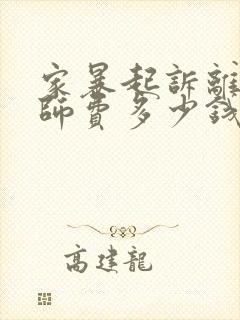 家暴起訴離
師費多少錢
高建龍